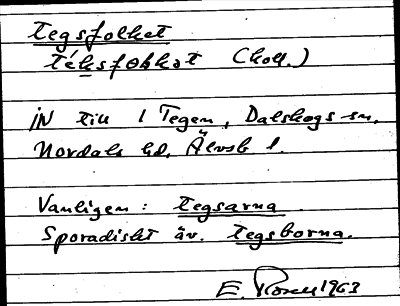 tegsfolket
ték̲sfoḷkət (koll.)
IN till 1 Tegen, Dalskogs sn,
Nordals hd, Älvsb l.
Vanligen: tegsarna
Sporadiskt äv. tegsborna.
E. Rosell 1963